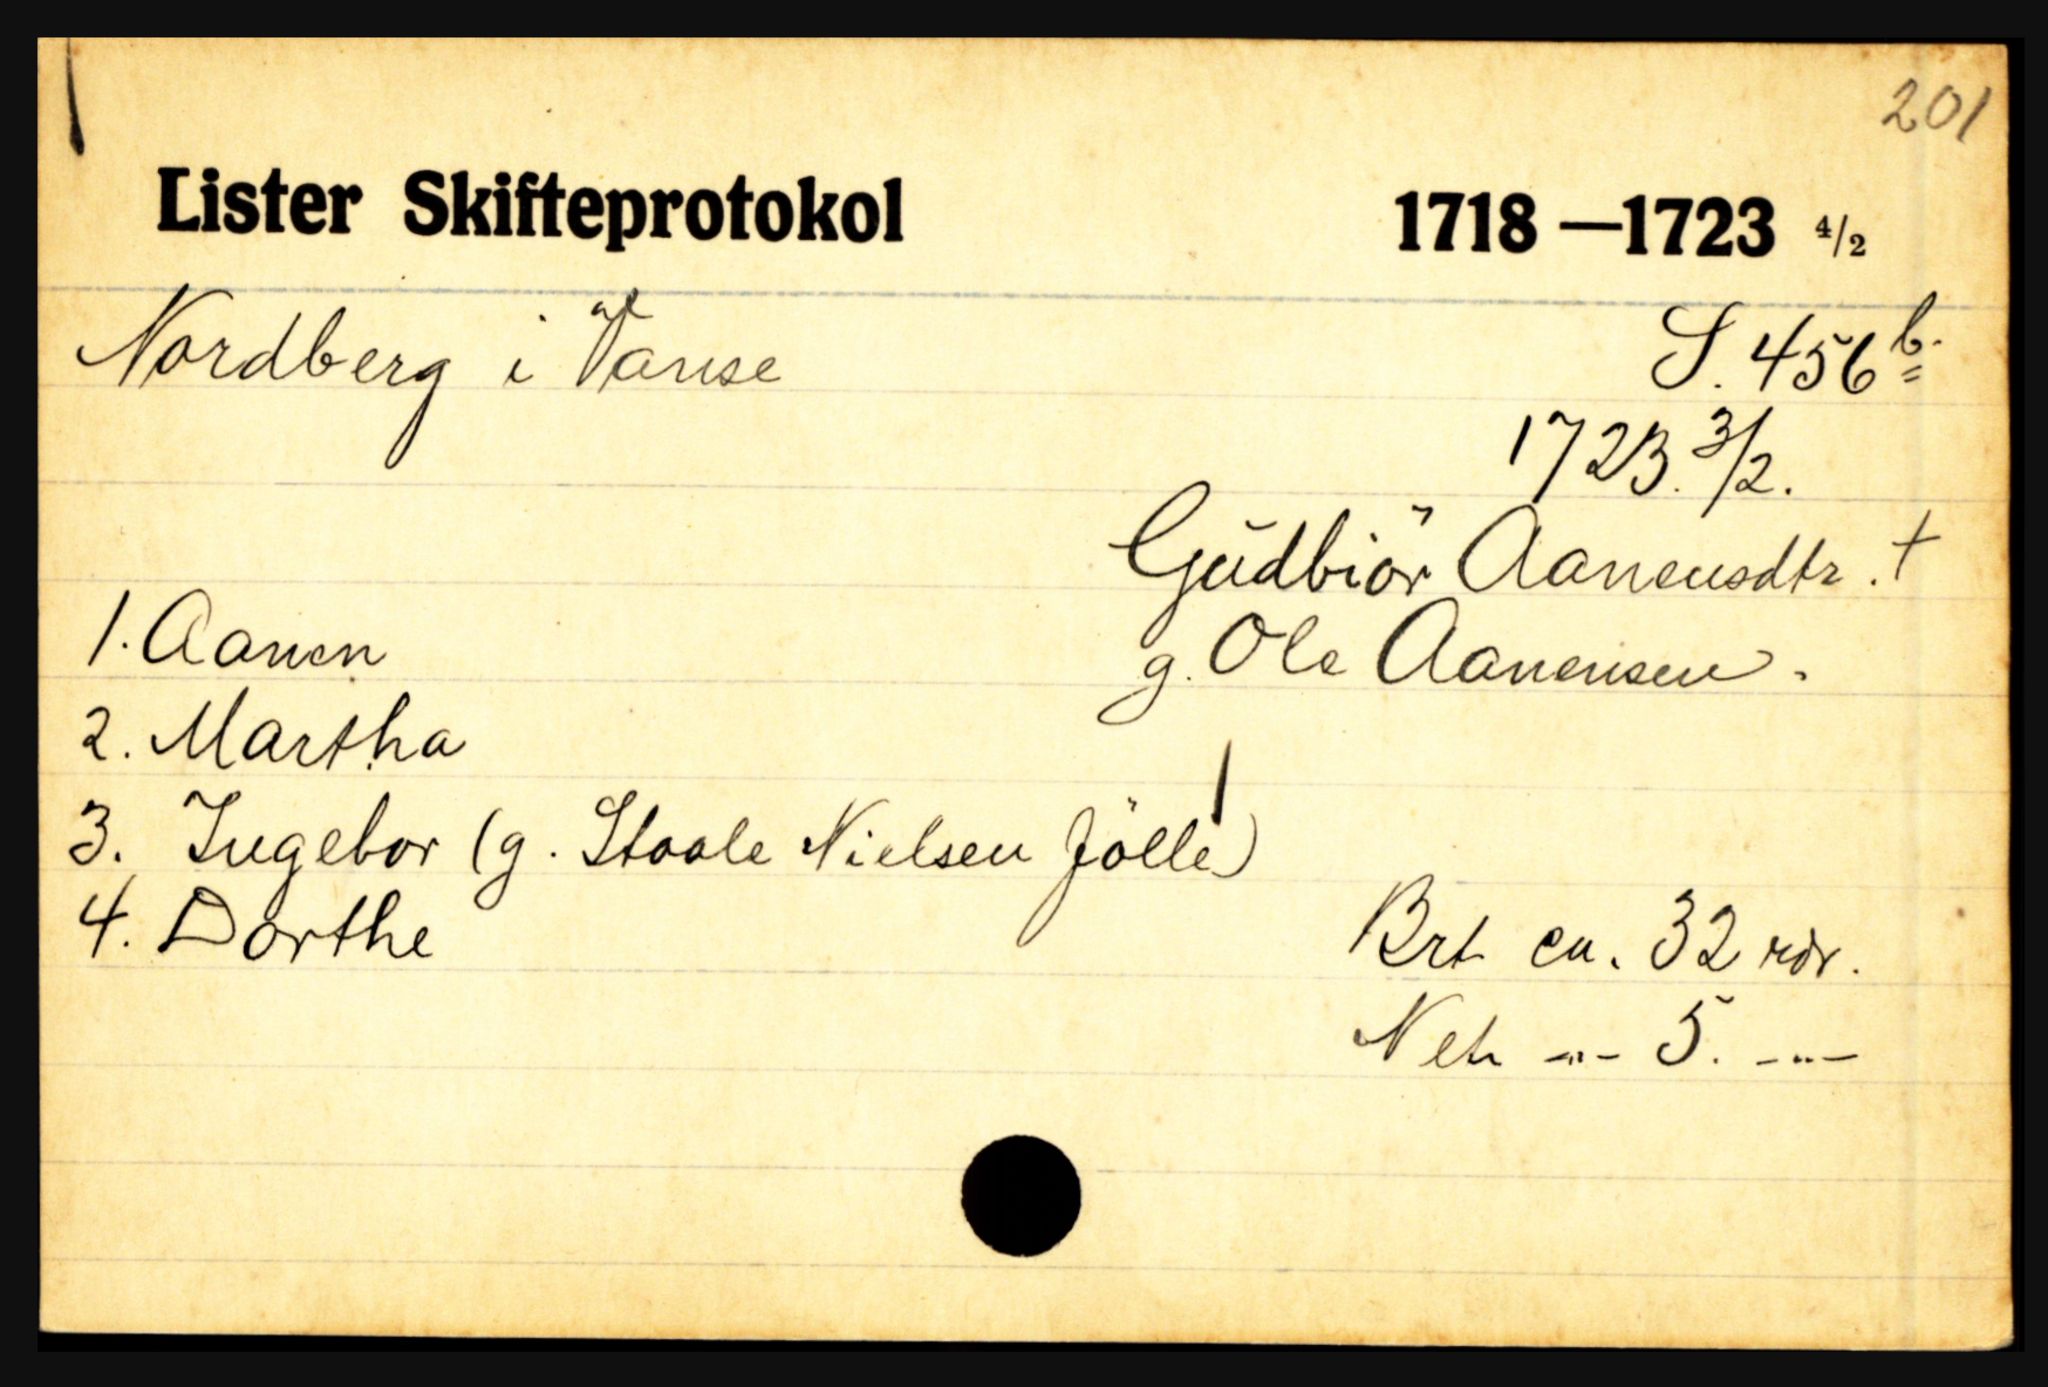 201
Lister Skifteprotokol 1718 — 1723 4/2
Nordberg i Vanse S. 456 b.
1723. 3/2.
Gudbiör Aanensdtr. †
1. Aanen g. Ole Aanensen.
2. Martha
3. Ingebor (g. Staale Nielsen Jölle)
4. Dorthe Brt ca. 32 rdr.
Net -"- 5. -"-